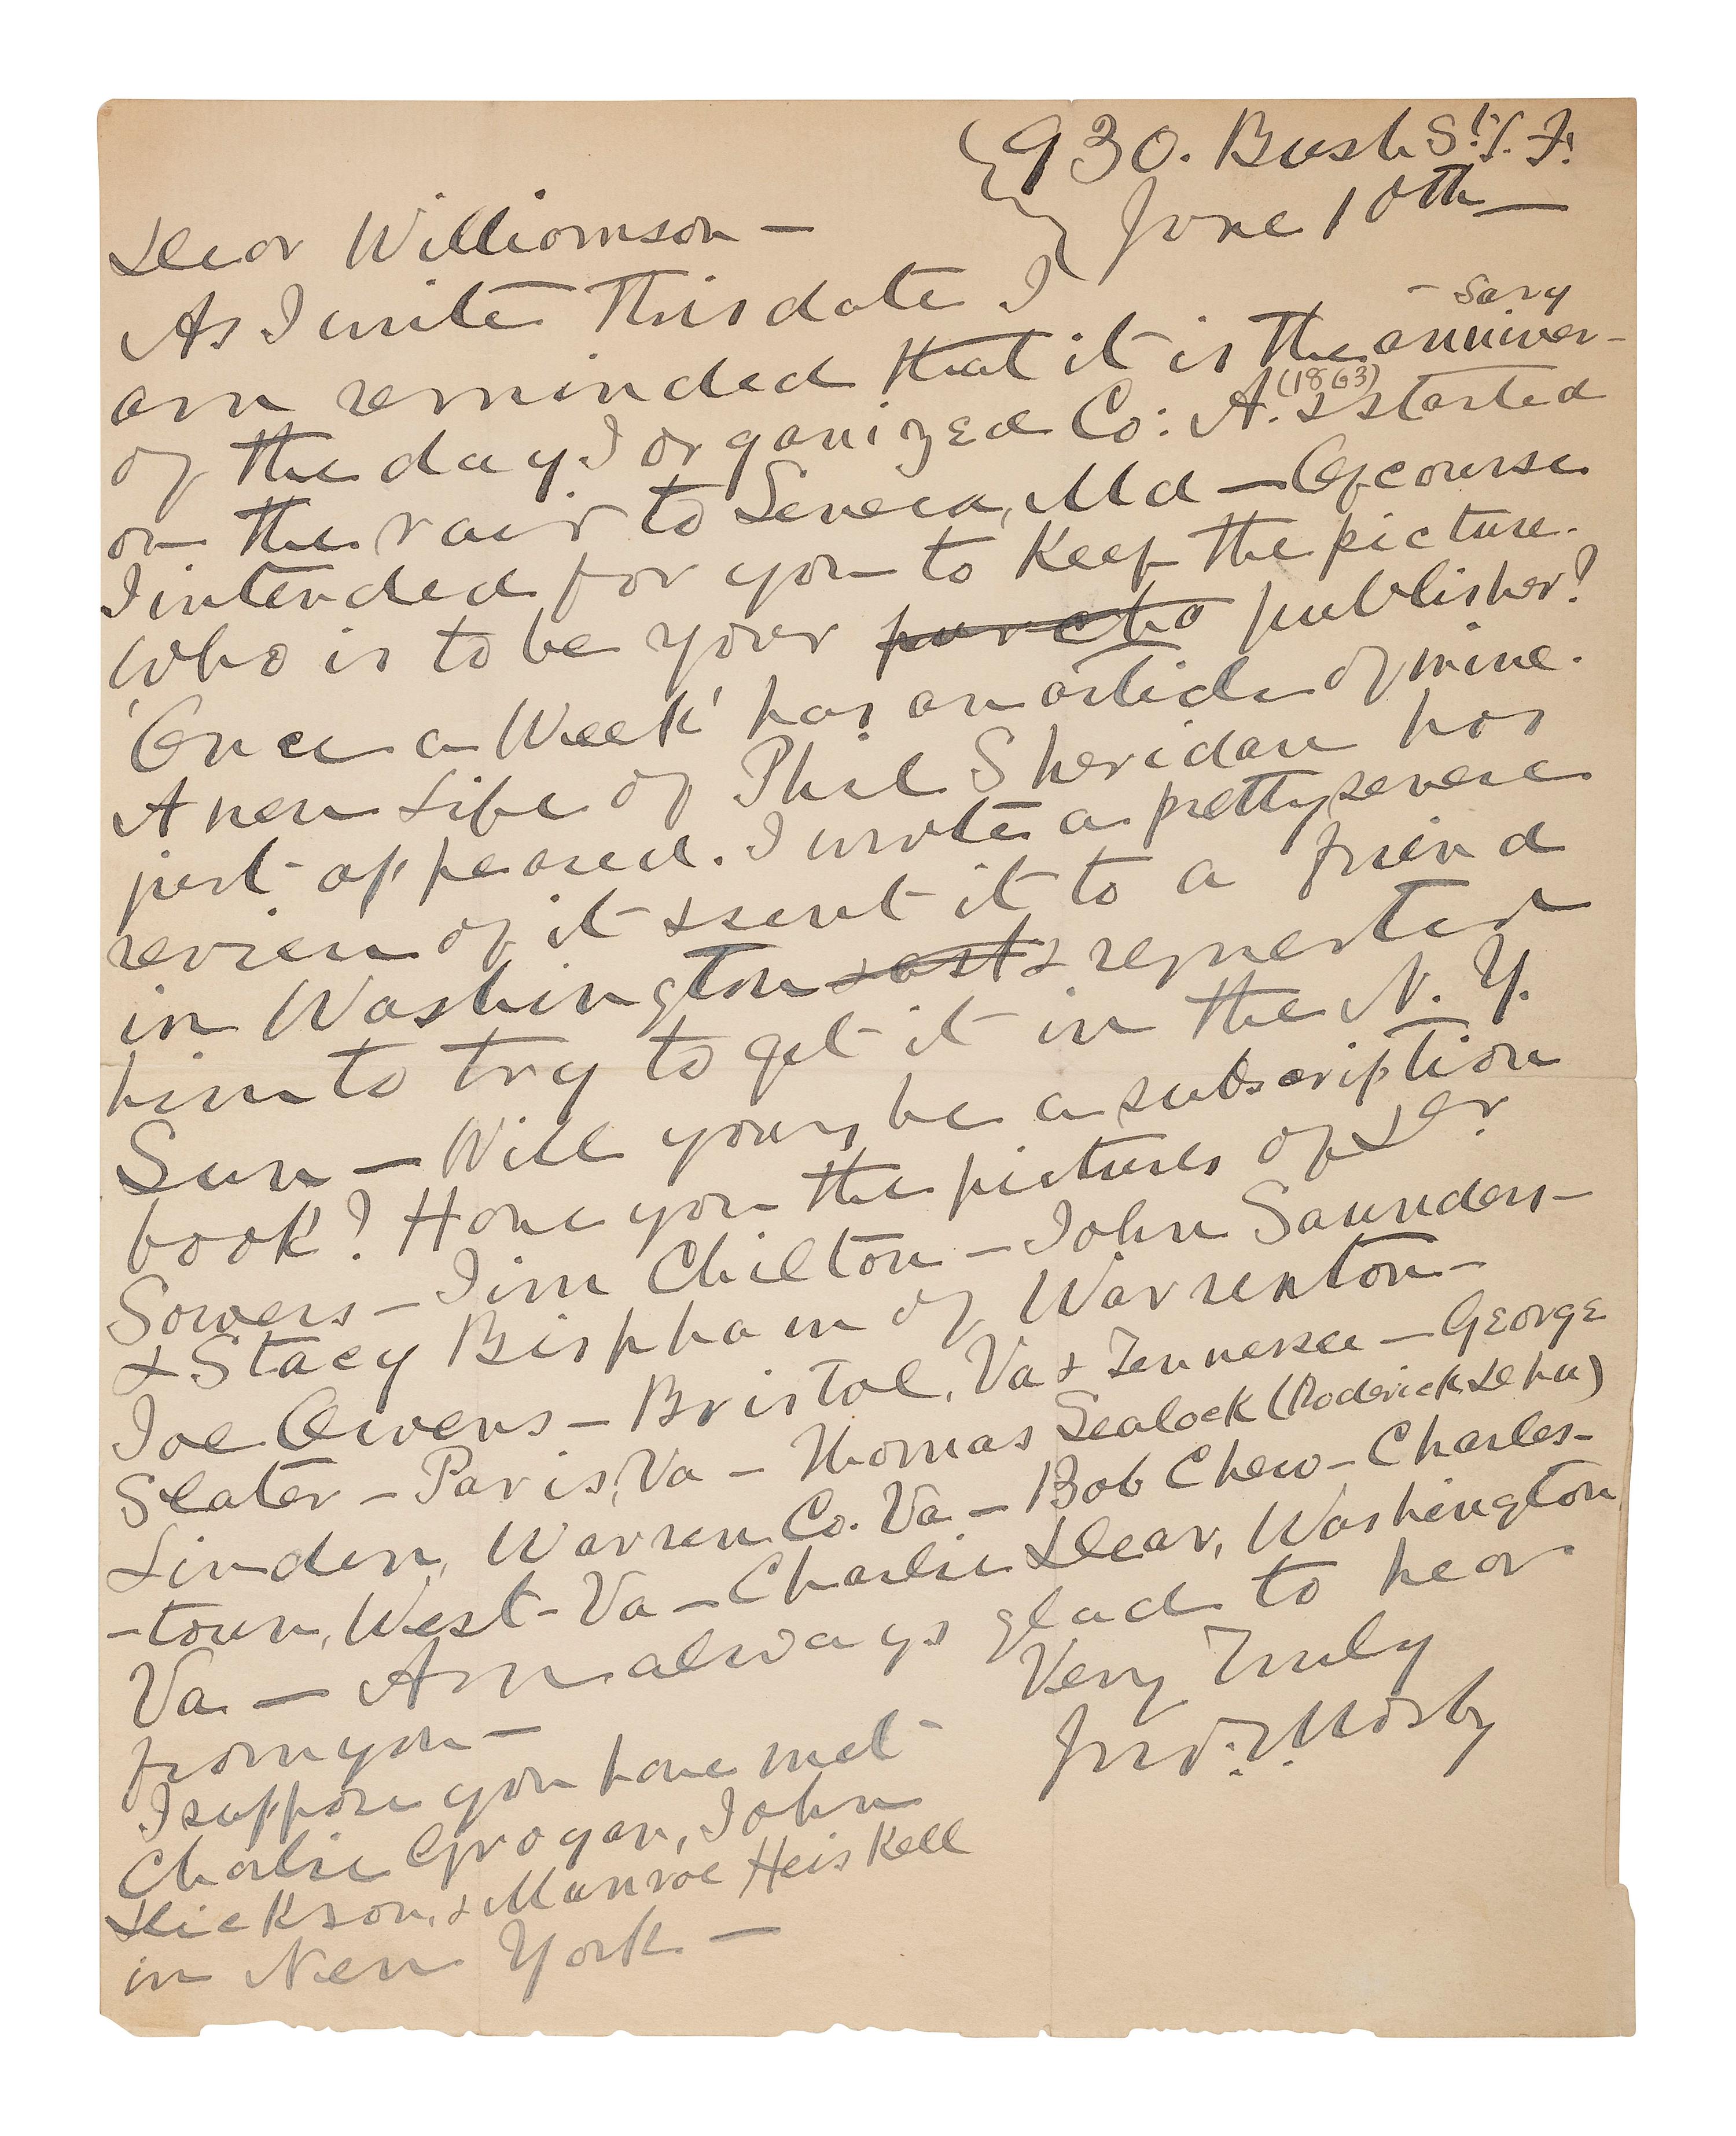 930. Bush St. S. F.
June 10th —
Dear Williamson —
As I write this date I
am reminded that it is the anniver-
-sary
of the day I organized Co: A. & started
(1863)
on the raid to Seneca, Md — Of course
I intended for you to keep the picture.
Who is to be your publisher?
'Once a Week' has an article of mine.
A new Life of Phil Sheridan has
just appeared. I wrote a pretty severe
review of it & sent it to a friend
in Washington & requested
him to try to get it in the N. Y.
Sun — Will yours be a subscription
book? Have you the pictures of Dr
Sowers — Jim Chilton — John Saunders —
& Stacy Bispham of Warrenton —
Joe Owens — Bristol, Va & Tennessee — George
Slater — Paris, Va — Thomas Sealock (Roderick Dhu)
Linden, Warren Co. Va — Bob Chew — Charles-
-town, West-Va — Charlie Dear, Washington
Va — Am always glad to hear
from you —
Very Truly
Jno. S. Mosby
I suppose you have met
Charlie Grogan, John
Dickson, & Munroe Heiskell
in New York —